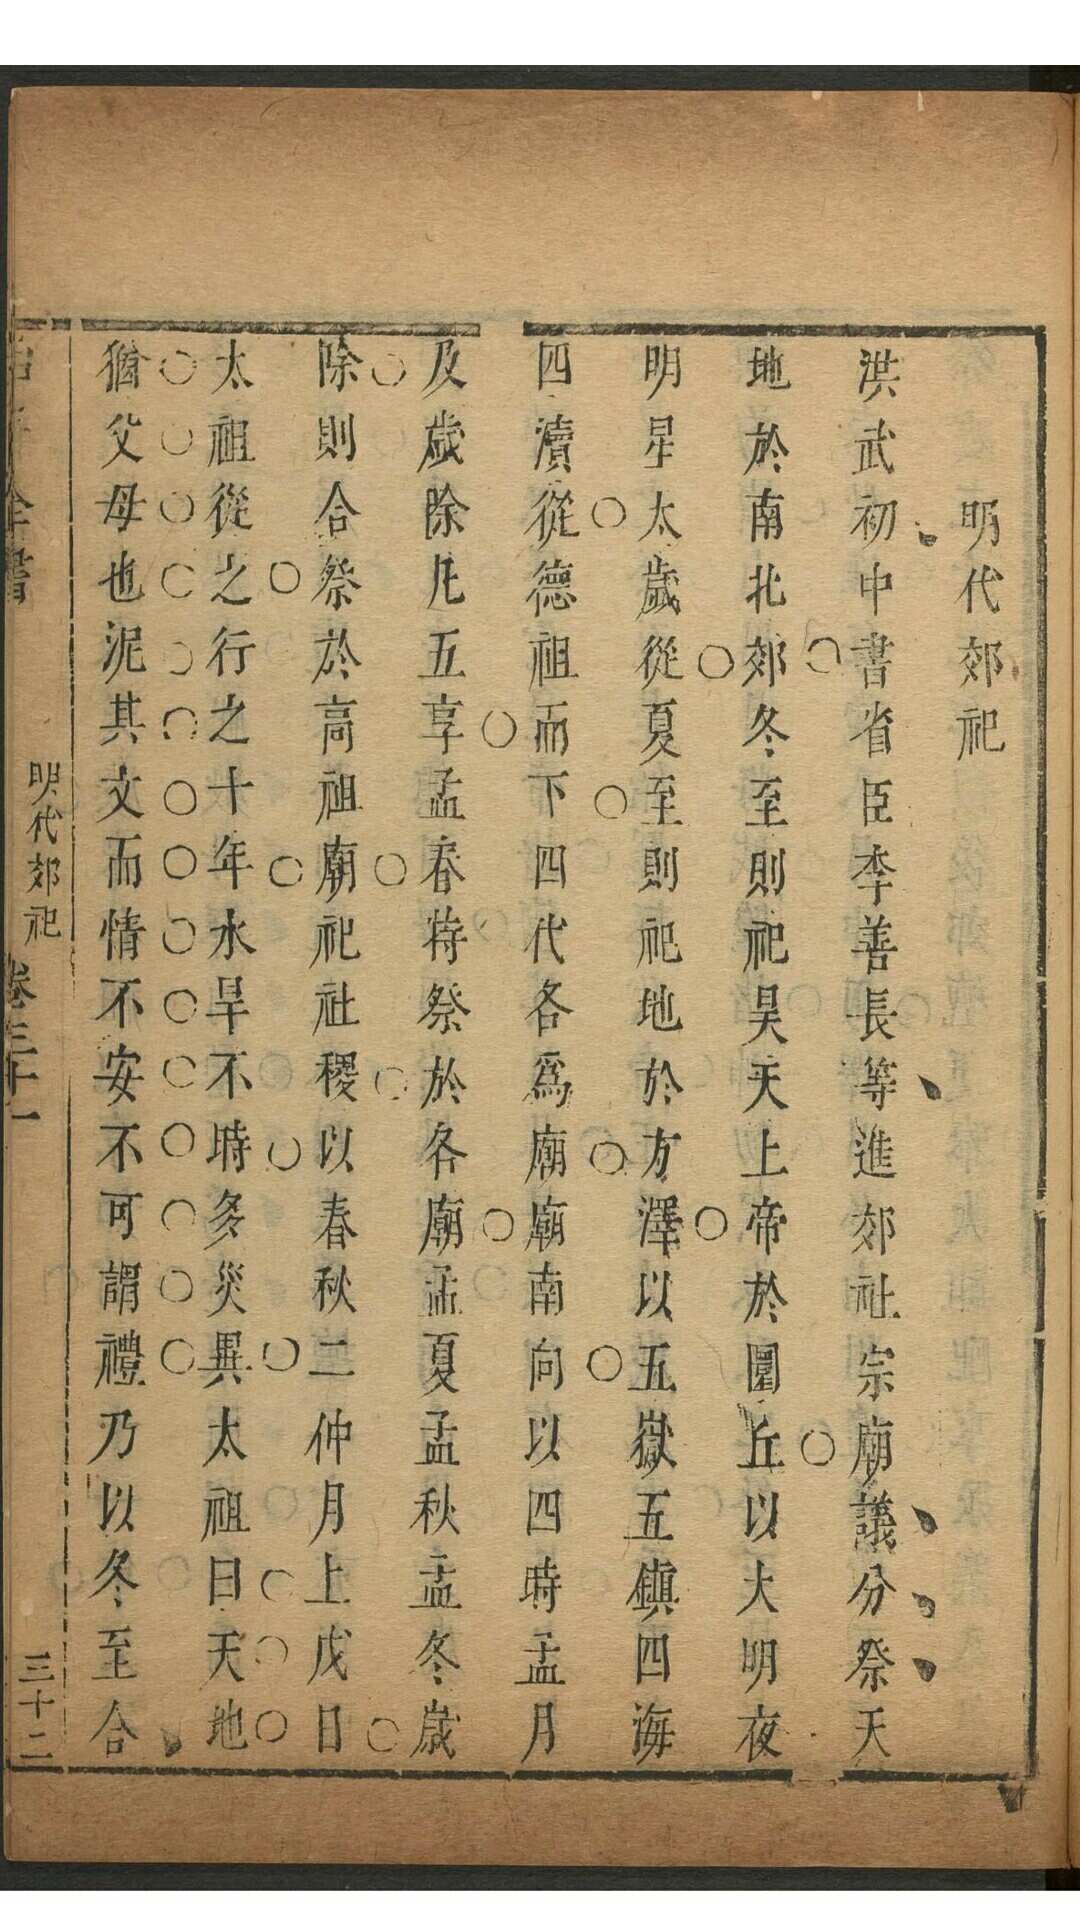 明代郊祀
洪武初中書省臣李善長等進郊社宗廟議分祭天
地於南北郊冬至則祀昊天上帝於圜丘以大明夜
明星太歲從夏至則祀地於方澤以五嶽五鎮四海
四瀆從德祖而下四代各爲廟廟南向以四時孟月
及歲除凡五享孟春特祭於各廟孟夏孟秋孟冬歲
除則合祭於高祖廟祀社稷以春秋二仲月上戊日
太祖從之行之十年水旱不時多災異太祖曰天地
猶父母也泥其文而情不安不可謂禮乃以冬至合
明代郊祀
卷三十一
三十二